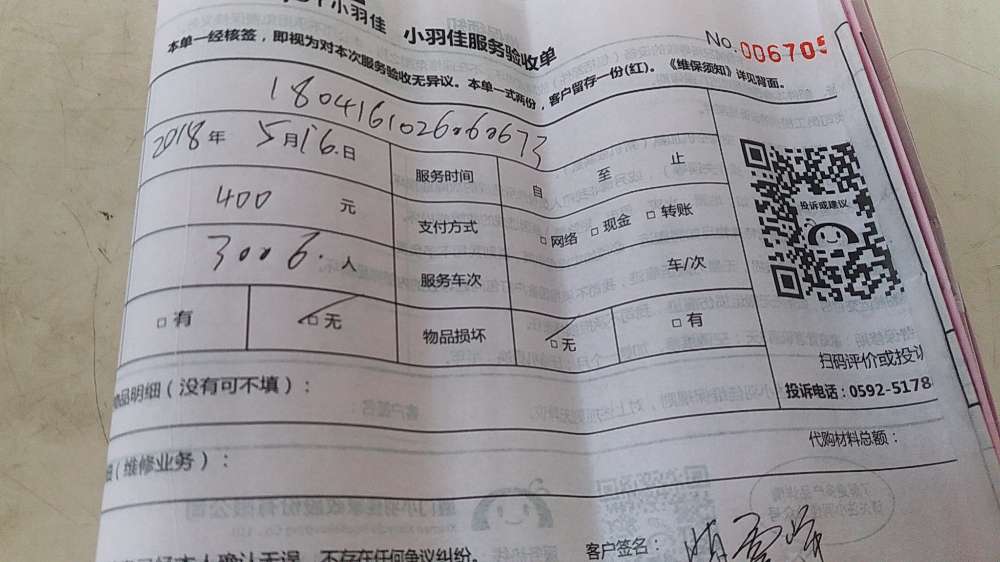 小羽佳 小羽佳服务验收单
No.006705
本单一经核签，即视为对本次服务验收无异议。本单一式两份，客户留存一份(红)。《维保须知》详见背面。
1804161026060673
2018年 5月16.日 服务时间 自 至 止
400 元 支付方式 □网络 □现金 □转账
3006. 人 服务车次 车/次
□有 □无 物品损坏 □无 □有
投诉或建议
扫码评价或投诉
投诉电话：0592-5178
品明细（没有可不填）：
代购材料总额：
（维修业务）：
本人确认无误，不存在任何争议纠纷。
客户签名：